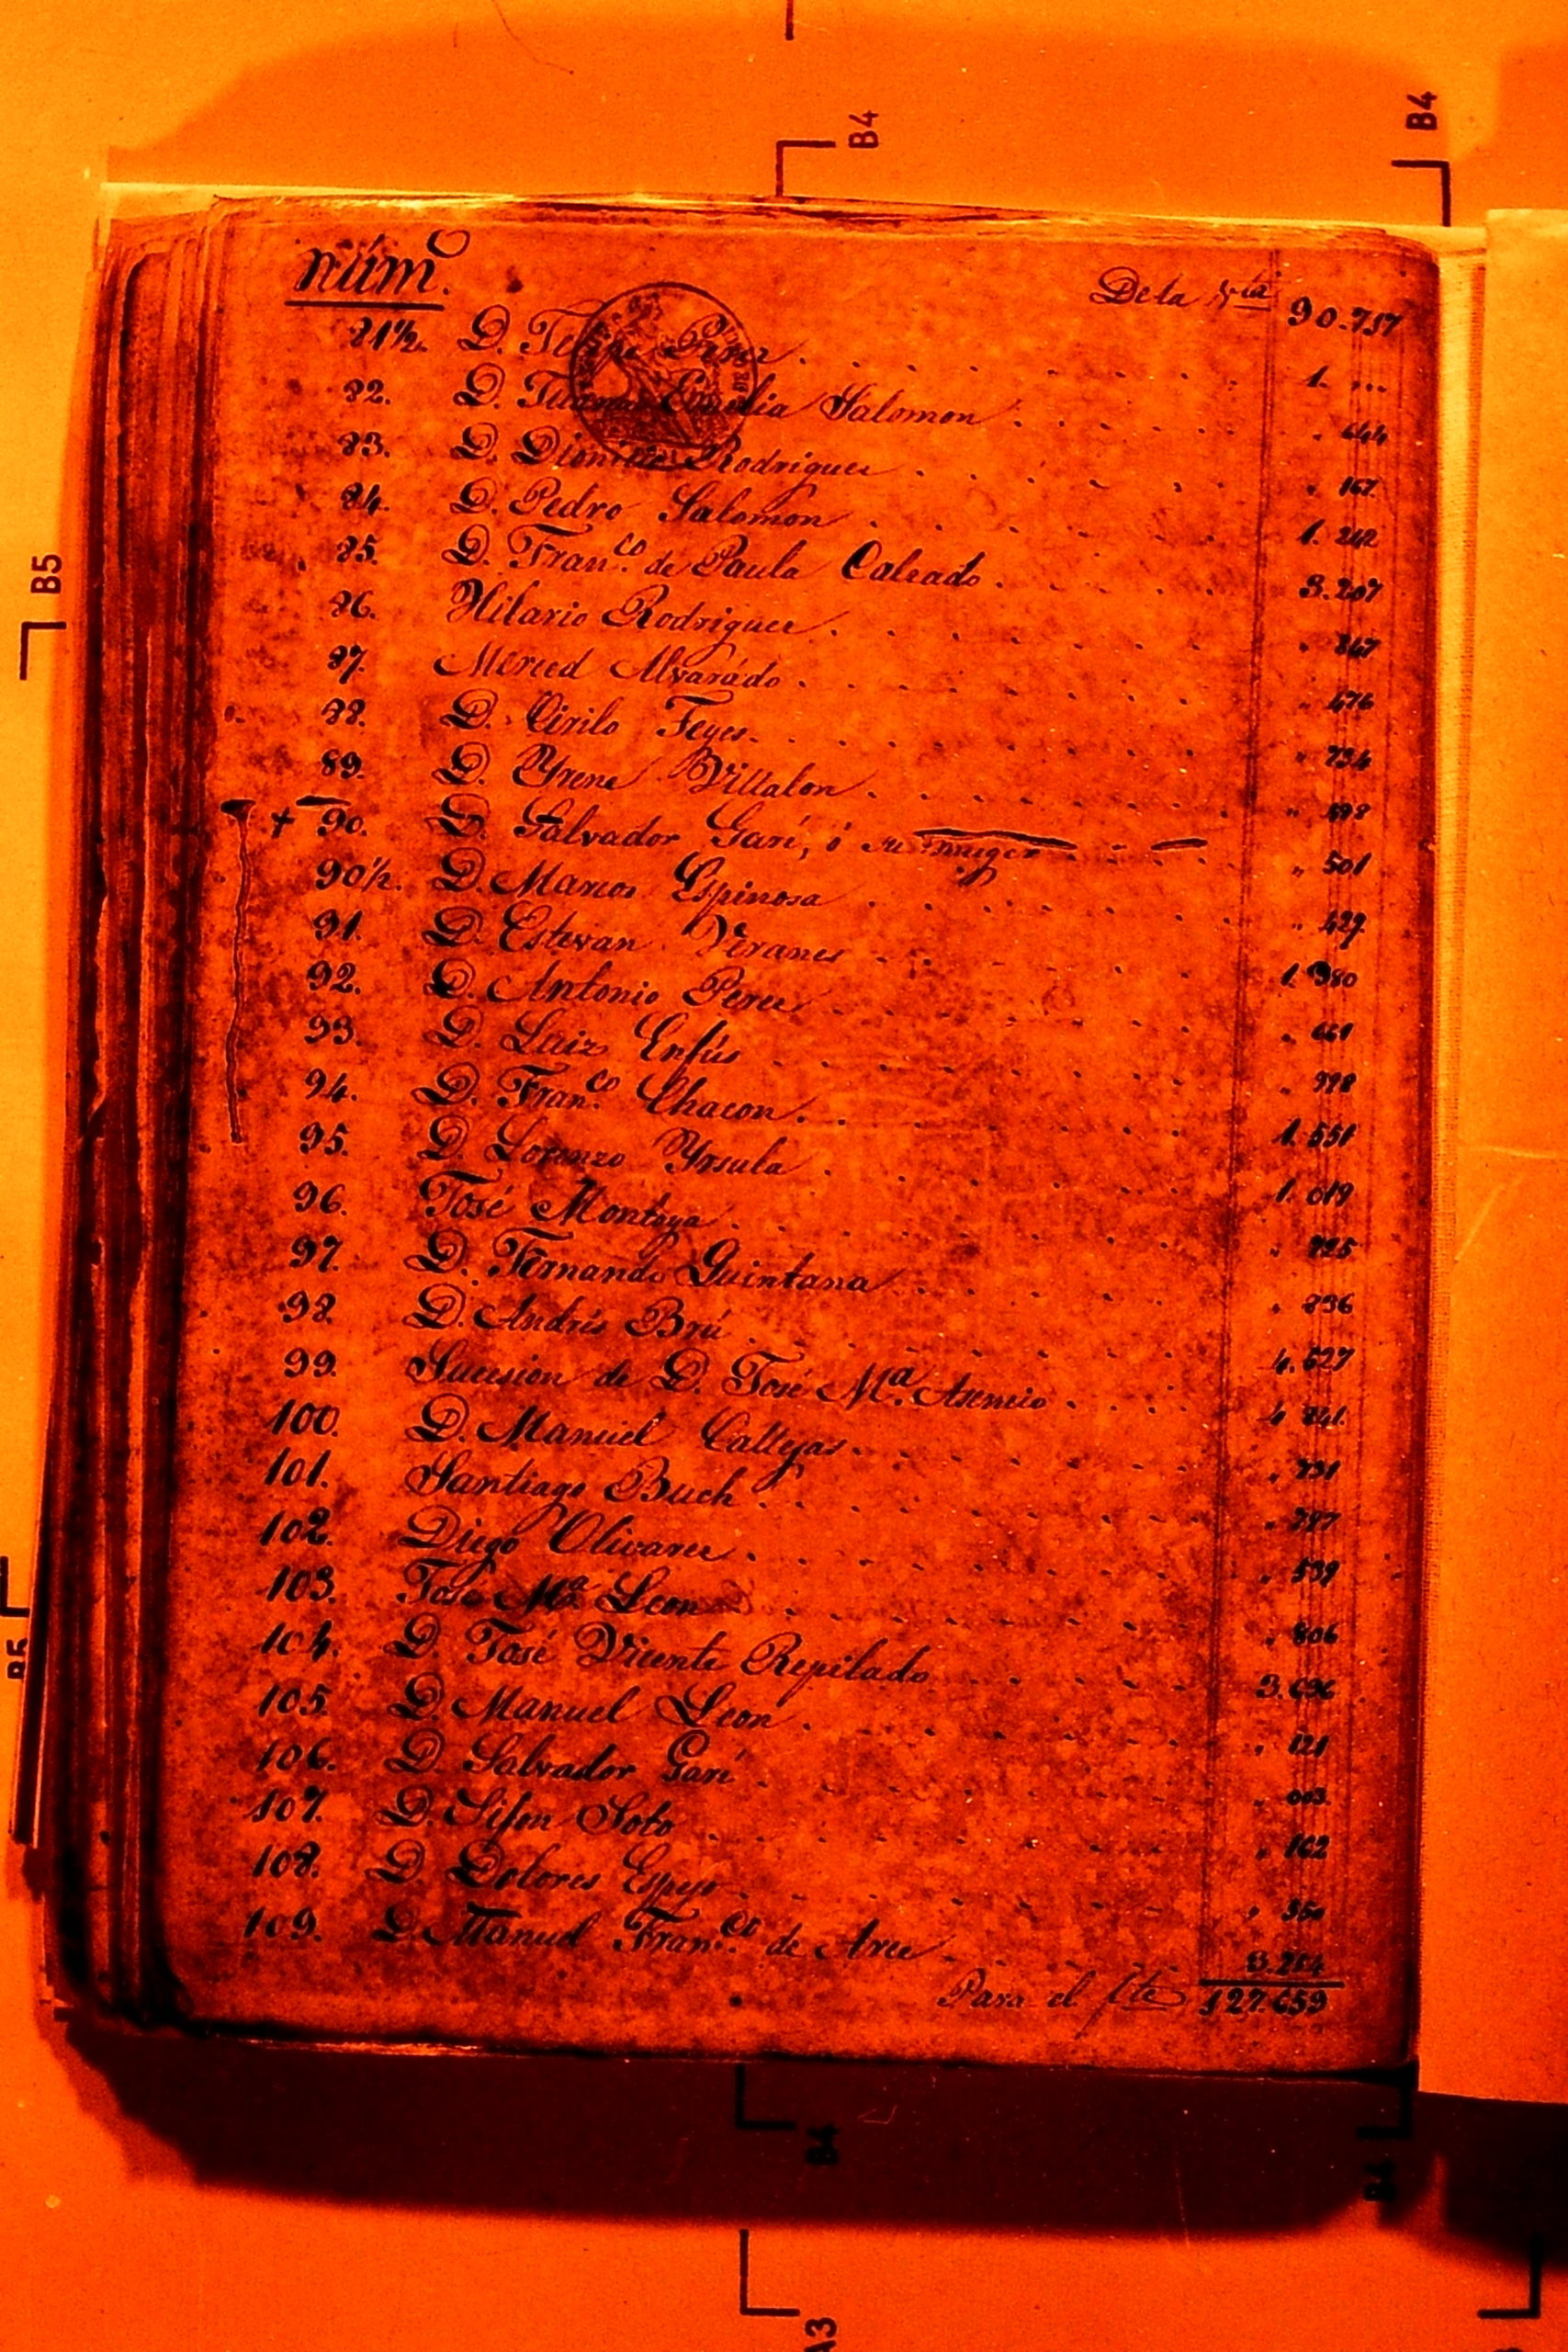 B4
B4
B5
núm.º
De la vta 90.757
81½. D. Felipe Perez . 1. ...
82. D. Emilia Salomon . 644
83. D. Rodriguez . 167.
84. D. Pedro Salomon . 1. 242
85. D. Fran.co de Paula Calzado . 3.207
86. Hilario Rodriguez . 867
87. Merced Alvarádo . 476
88. D. Cirilo Feyes . 734
89. D. Yrene Villalon . 898
+ 90. D. Salvador Garí, ó su . 501
90½. D. Marcos Espinosa . 429.
91. D. Estevan Veranes . 1.980
92. D. Antonio Perez . 661
93. D. Luiz Enfús . 998
94. D. Fran.co Chacon . 1.551
95. D. Lorenzo Yrsula . 1.019
96. José Montoya .
97. D. Fernando Quintana . 896
98. D. Andrés Brú . 4.627
99. Sucesion de D. José M.a Asencio . 841.
100. D. Manuel Callejas .
101. Santiago Buch .
102. Diego Olivarez . 539
103. José M.a Leon . 806
104. D. José Vicente Repilado 3.696
105. D. Manuel Leon . 121
106. D. Salvador Garí . 003.
107. D. Soto . 162
108. D. Dolores Espejo . 350
109. D. Manuel Fran.co de Arce . 3.254
Para el fte 127.659
B5
B4
B4
A3